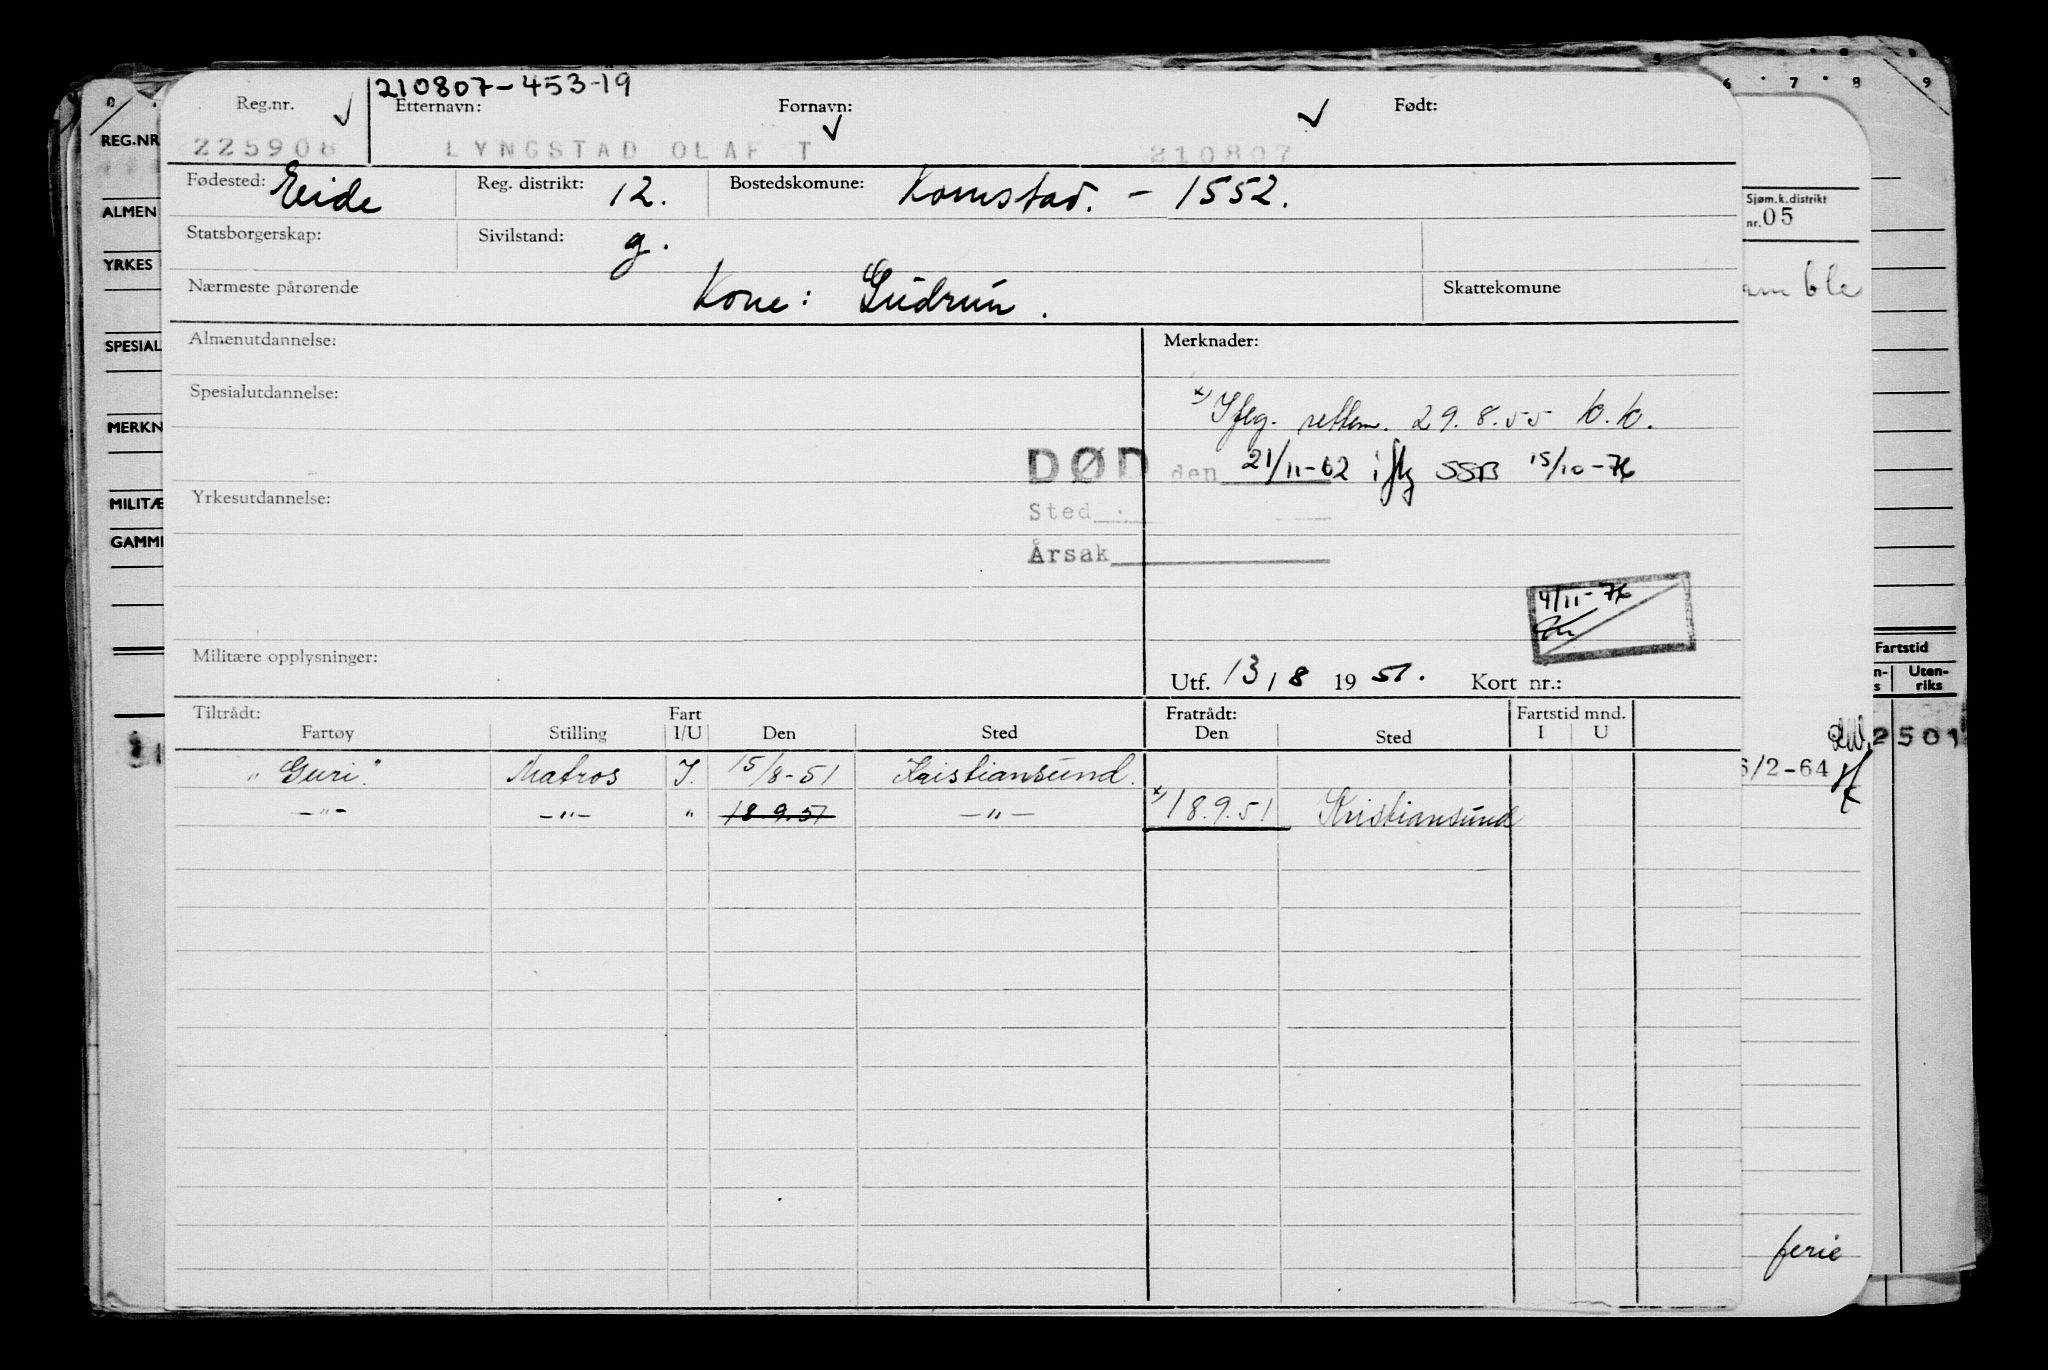 210807-453-19
Reg.nr. Etternavn: Fornavn: Født:
225908 LYNGSTAD OLAF T 210807
Fødested: Eide Reg. distrikt: 12. Bostedskomune: Kornstad. - 1552.
Statsborgerskap: Sivilstand: g.
Nærmeste pårørende Kone: Gudrun. Skattekomune
Almenutdannelse: Merknader:
Spesialutdannelse: x) Iflg. rettem. 29.8.55 K.K.
DØD den 21/11-62 iflg SSB 15/10-76
Yrkesutdannelse:
Sted
Årsak
4/11-76
Militære opplysninger:
Utf. 13/8 1951. Kort nr.:
Tiltrådt: Fart Fratrådt: Fartstid mnd.
Fartøy Stilling I/U Den Sted Den Sted I U
"Guri". Matros I. 15/8-51 Kristiansund.
-"- -"- " 18.9.51 -"- x) 18.9.51 Kristiansund
0
REG.NR
ALMEN
YRKES
SPESIAL
MERKN
MILITÆ
GAMM
6 7 8 9
Sjøm.k.distrikt
nr. 05
amble
Fartstid
Uten-
riks
2501
6/2-64
ferie